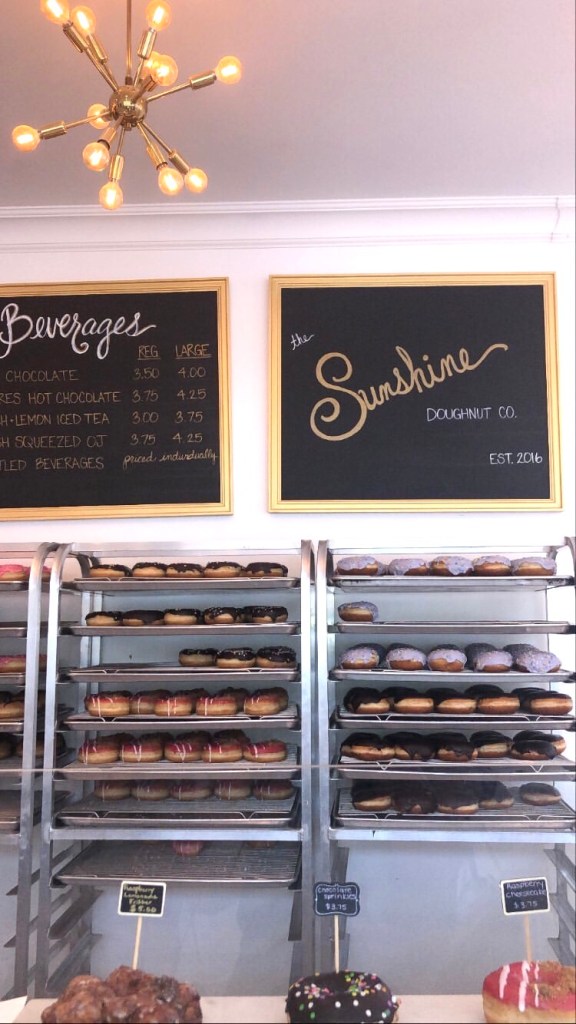 Beverages
REG LARGE
CHOCOLATE 3.50 4.00
RES HOT CHOCOLATE 3.75 4.25
H+LEMON ICED TEA 3.00 3.75
SH SQUEEZED OJ 3.75 4.25
TLED BEVERAGES priced individually
the
Sunshine
DOUGHNUT CO.
EST. 2016
Raspberry
Lemonade
Fritter
Chocolate
Sprinkles
$2.75
Raspberry
Cheesecake
$3.75